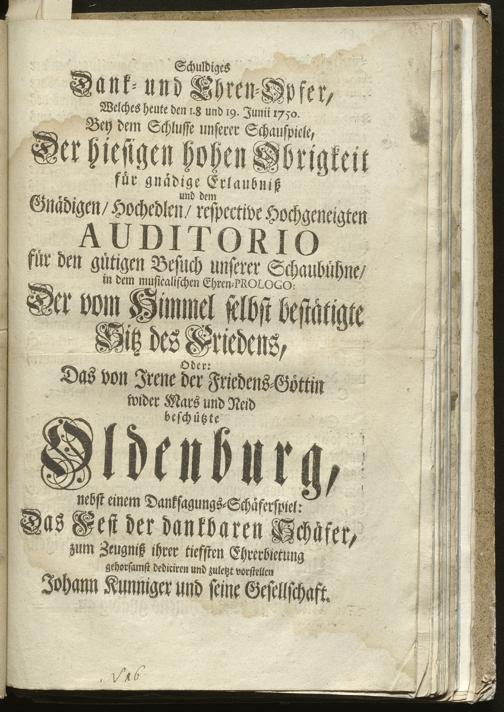 Schuldiges
Dank- und Ehren-Opfer,
Welches heute den 18 und 19. Junii 1750.
Bey dem Schlusse unserer Schauspiele,
Der hiesigen hohen Obrigkeit
für gnädige Erlaubniß
und dem
Gnädigen/ Hochedlen/ respective Hochgeneigten
AUDITORIO
für den gütigen Besuch unserer Schaubühne/
in dem musicalischen Ehren-PROLOGO:
Der vom Himmel selbst bestätigte
Sitz des Friedens,
Oder:
Das von Irene der Friedens-Göttin
wider Mars und Neid
beschützte
Oldenburg,
nebst einem Danksagungs-Schäferspiel:
Das Fest der dankbaren Schäfer,
zum Zeugniß ihrer tiefsten Ehrerbietung
gehorsamst dediciren und zuletzt vorstellen
Johann Kunniger und seine Gesellschaft.